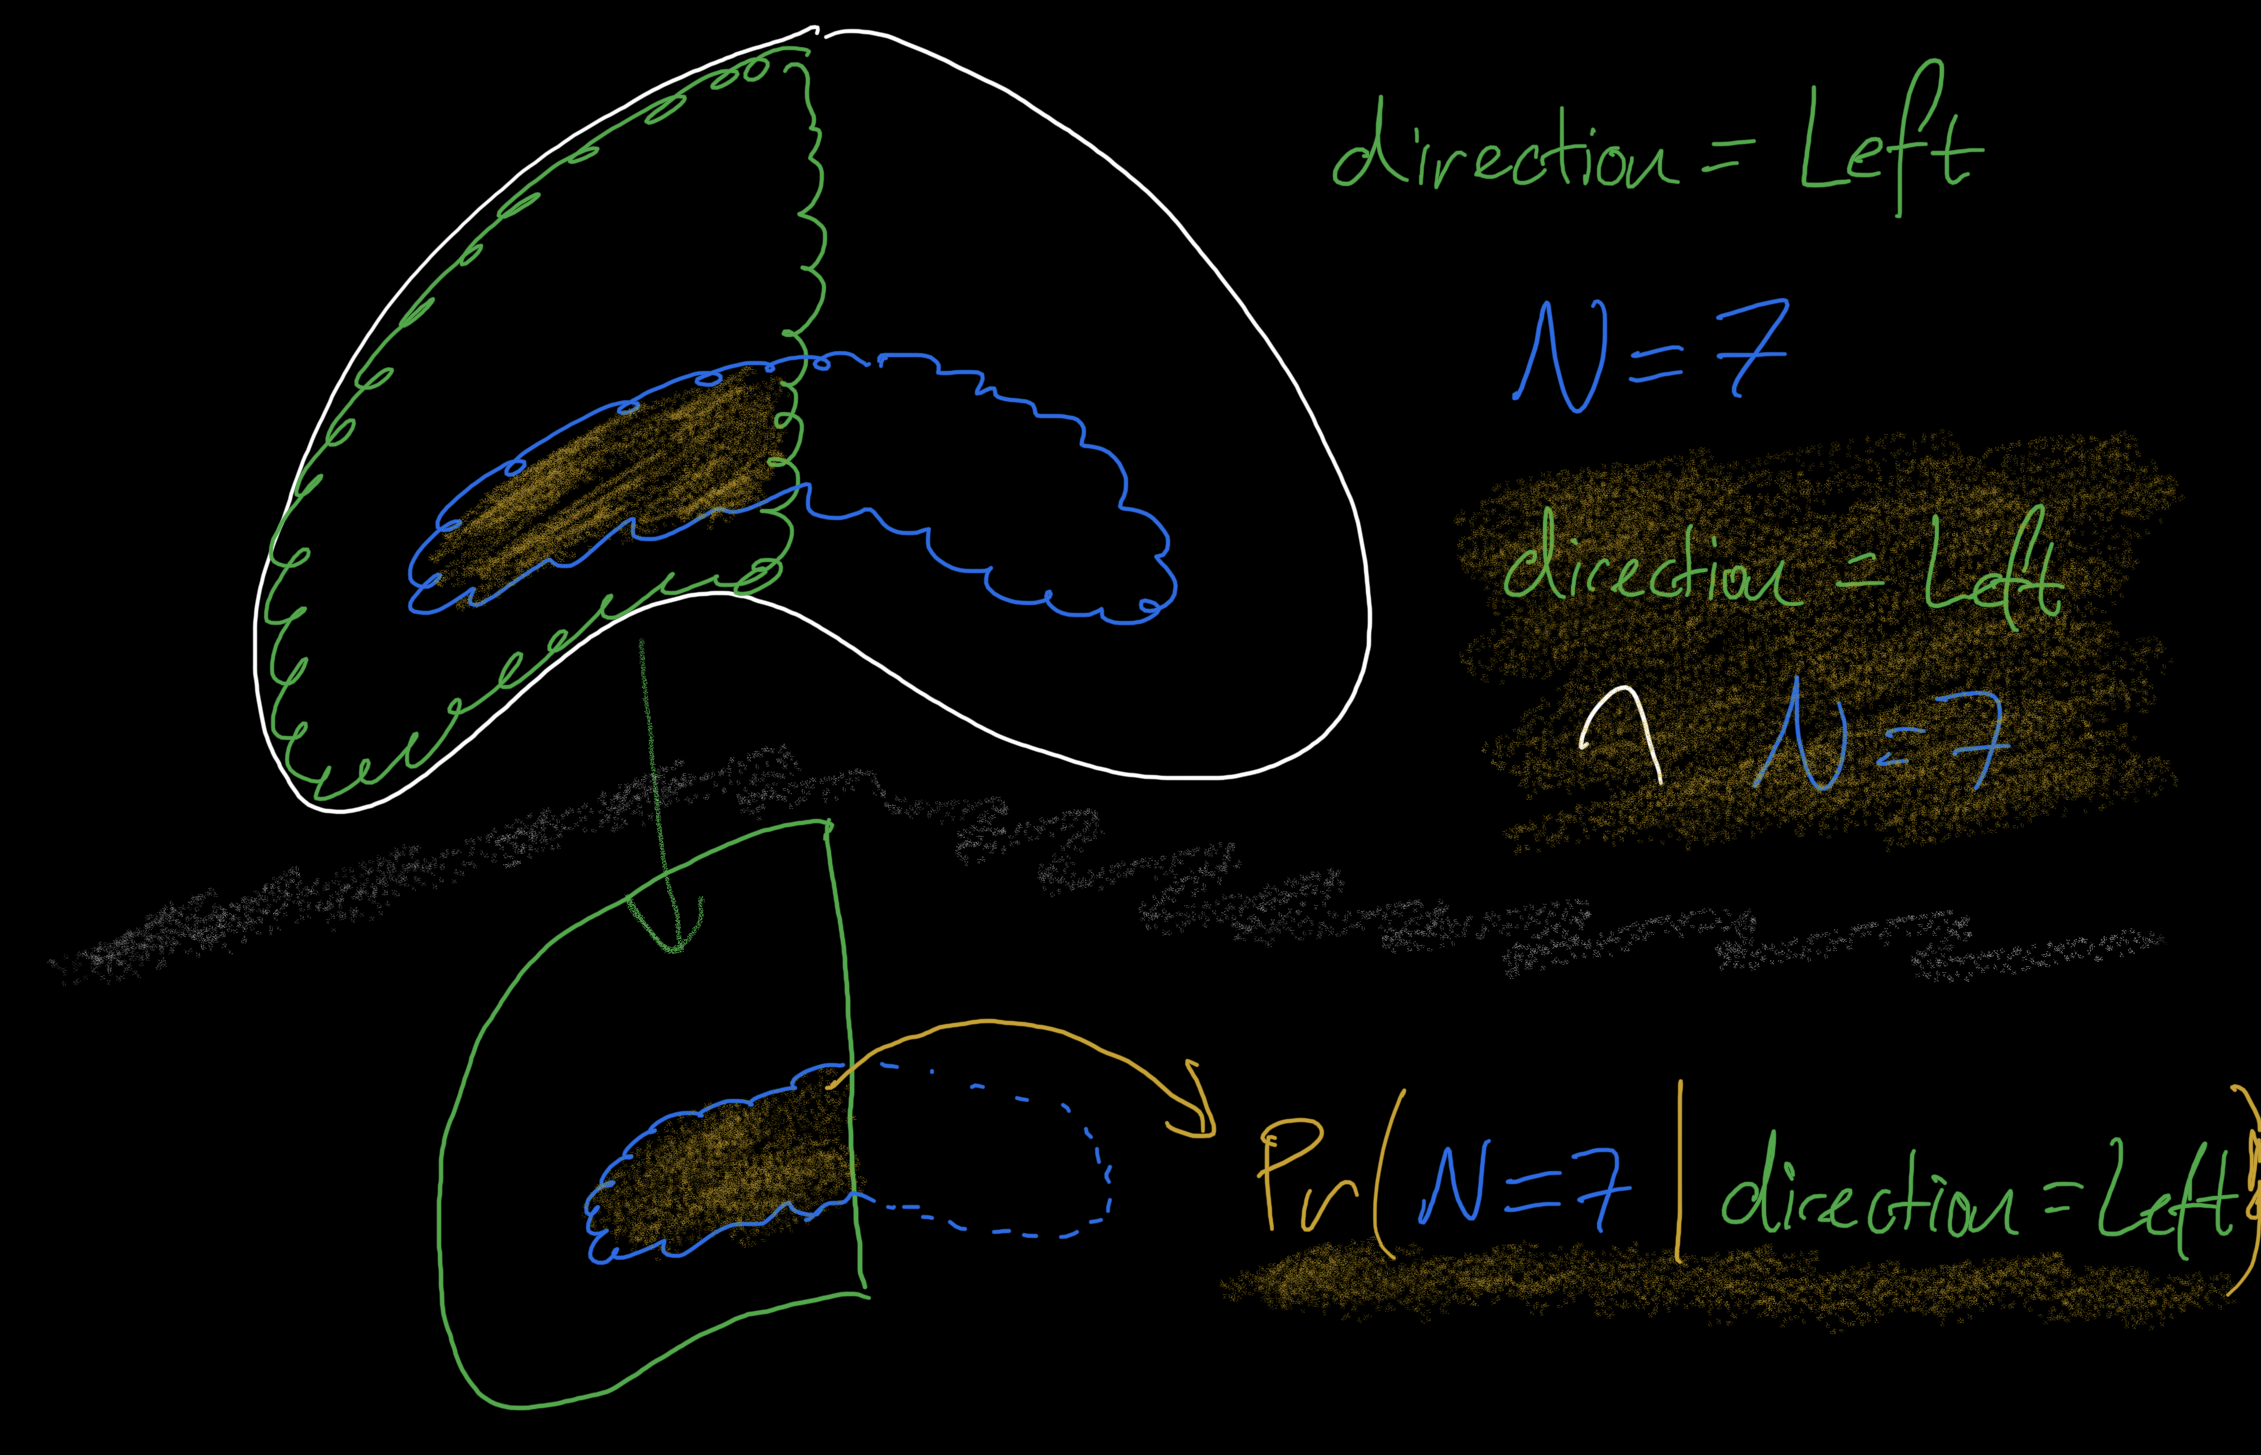 direction = Left
N = 7
direction = Left
∩ N = 7
Pr( N = 7 | direction = Left )